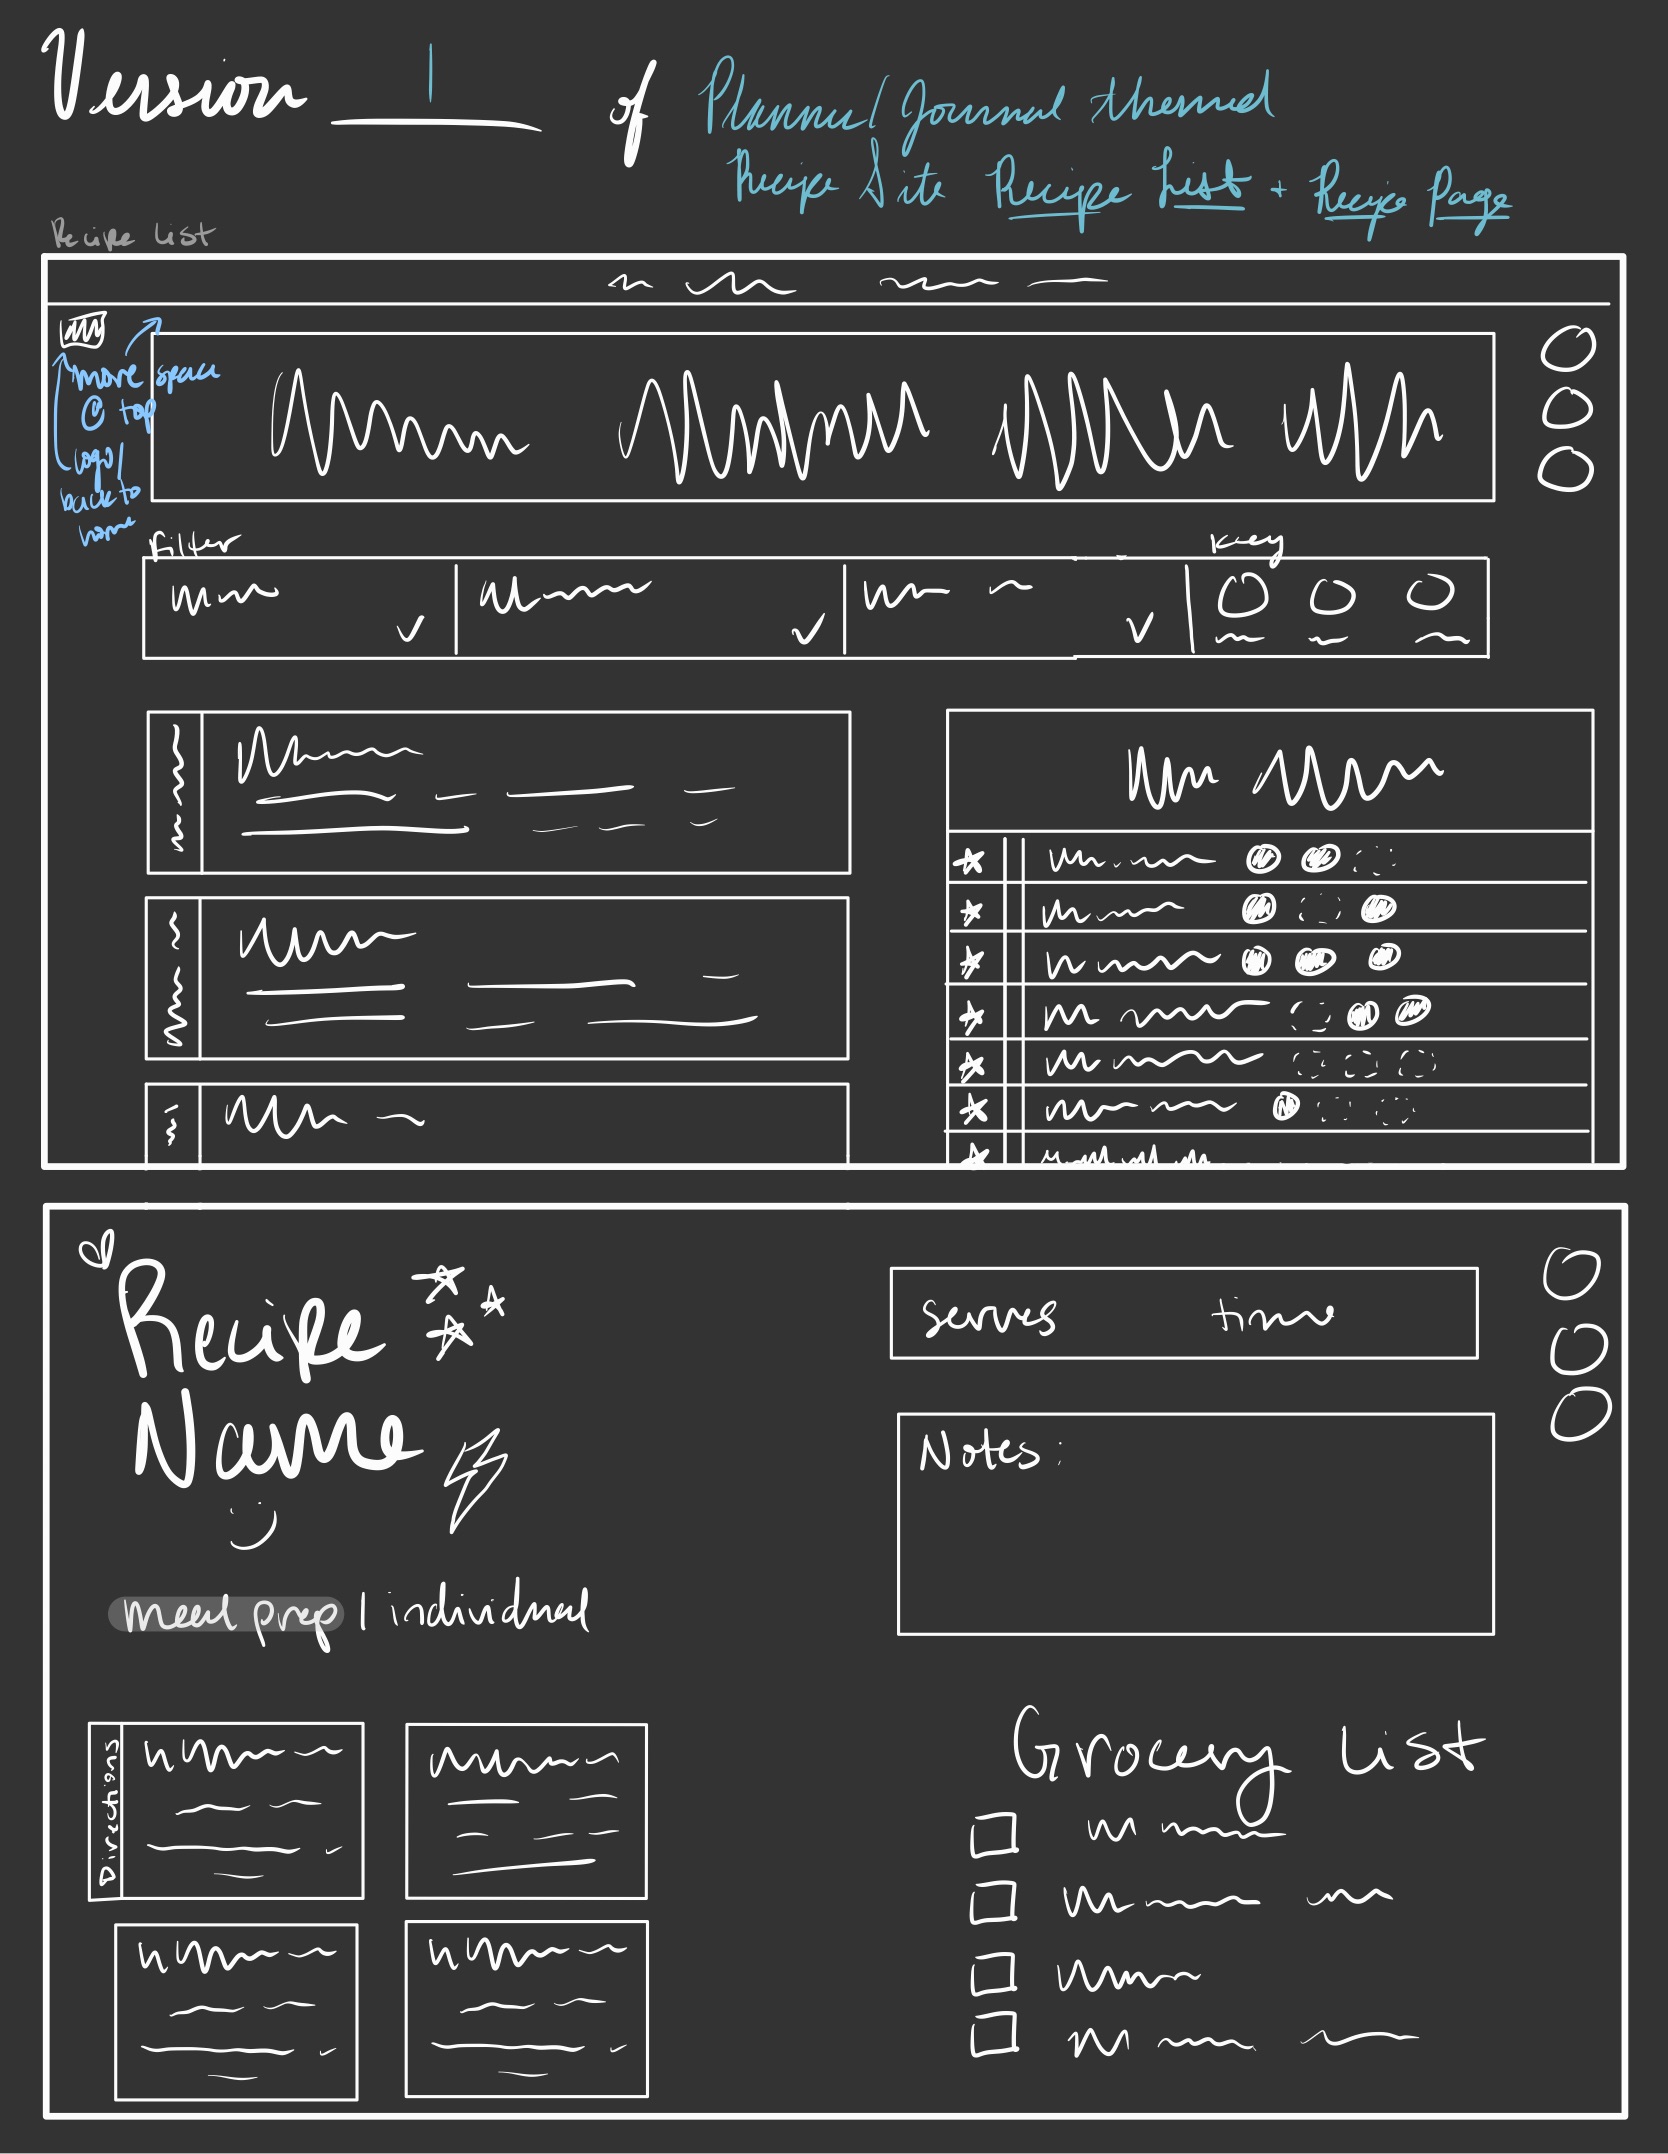 Version 1 of Planner/Journal themed
Recipe Site Recipe List + Recipe Page
Recipe List
more space
@ top
logo/
back to
home
Filter
Key
Recipe
Name
serves time
Notes:
meal prep | individual
Directions
Grocery List